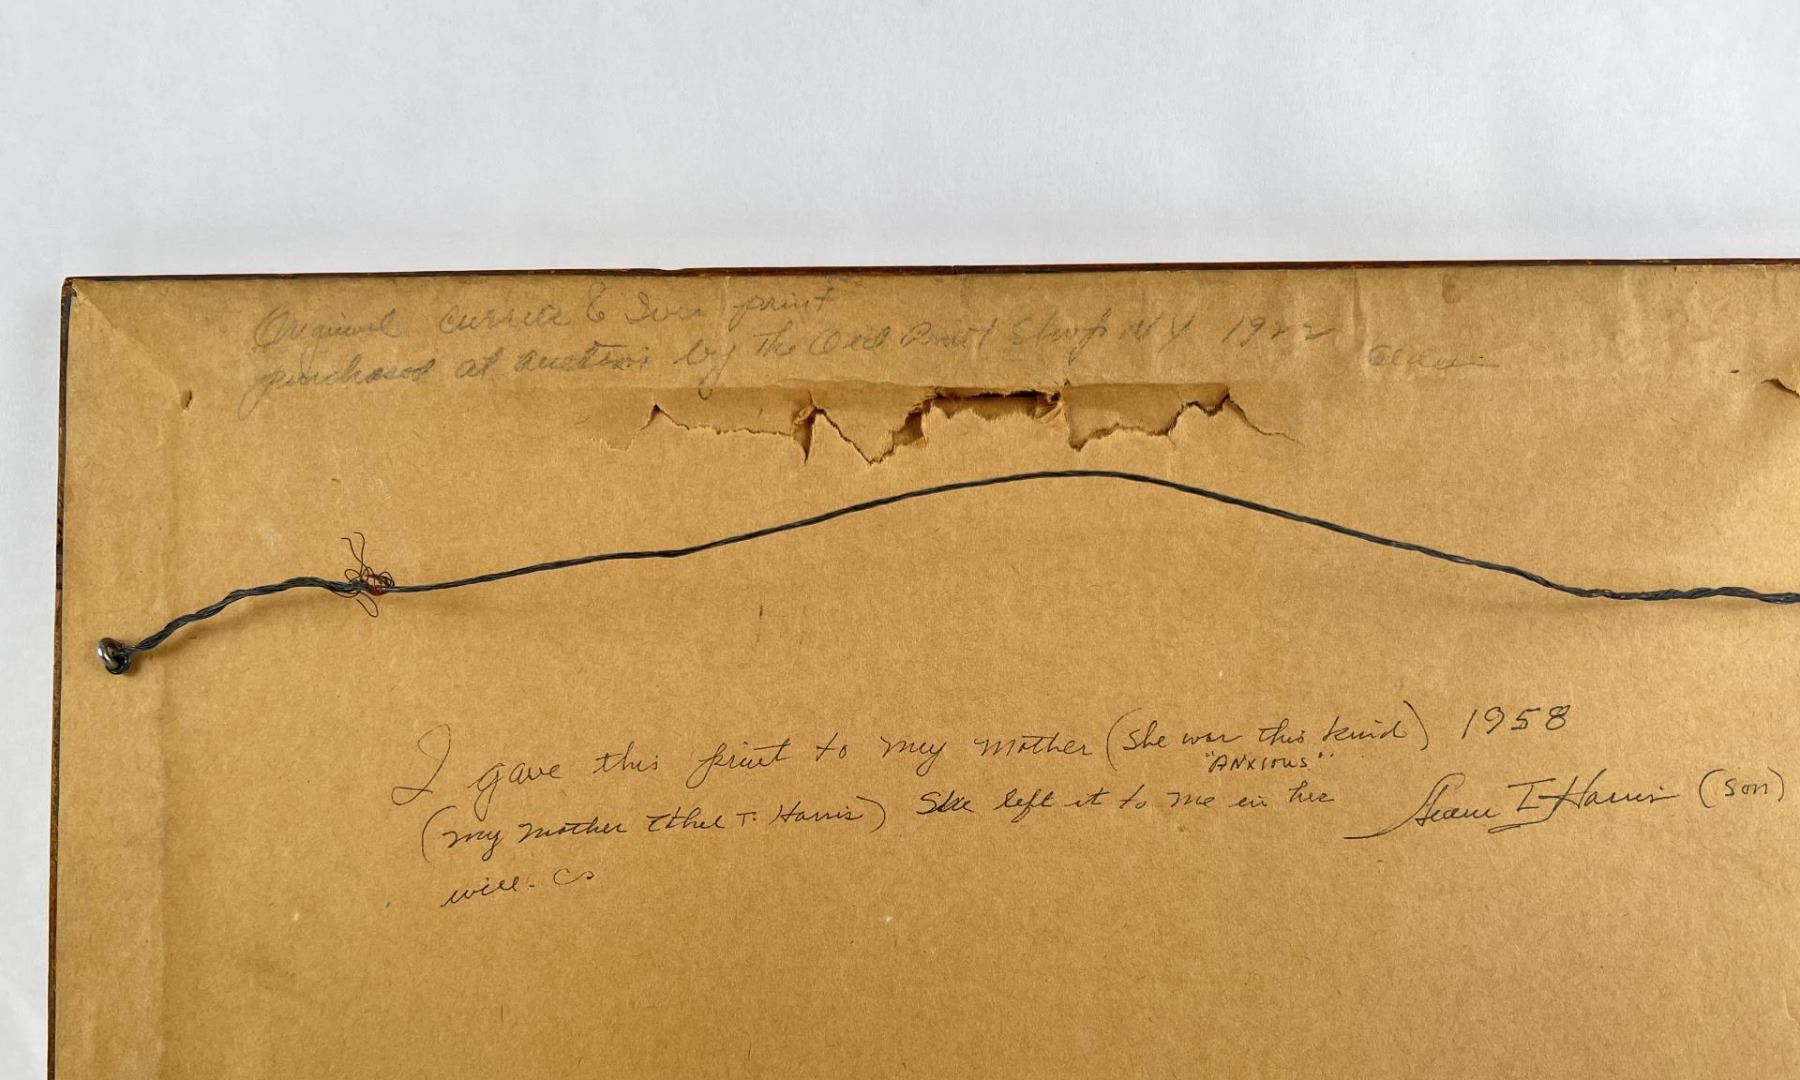 Original Currier & Ives print
purchased at auction by The Old Print Shop N Y 1922
I gave this print to my mother (She was this kind) 1958
"ANXIOUS"
(my mother Ethel T. Harris) She left it to me in her
T Harris (son)
will.